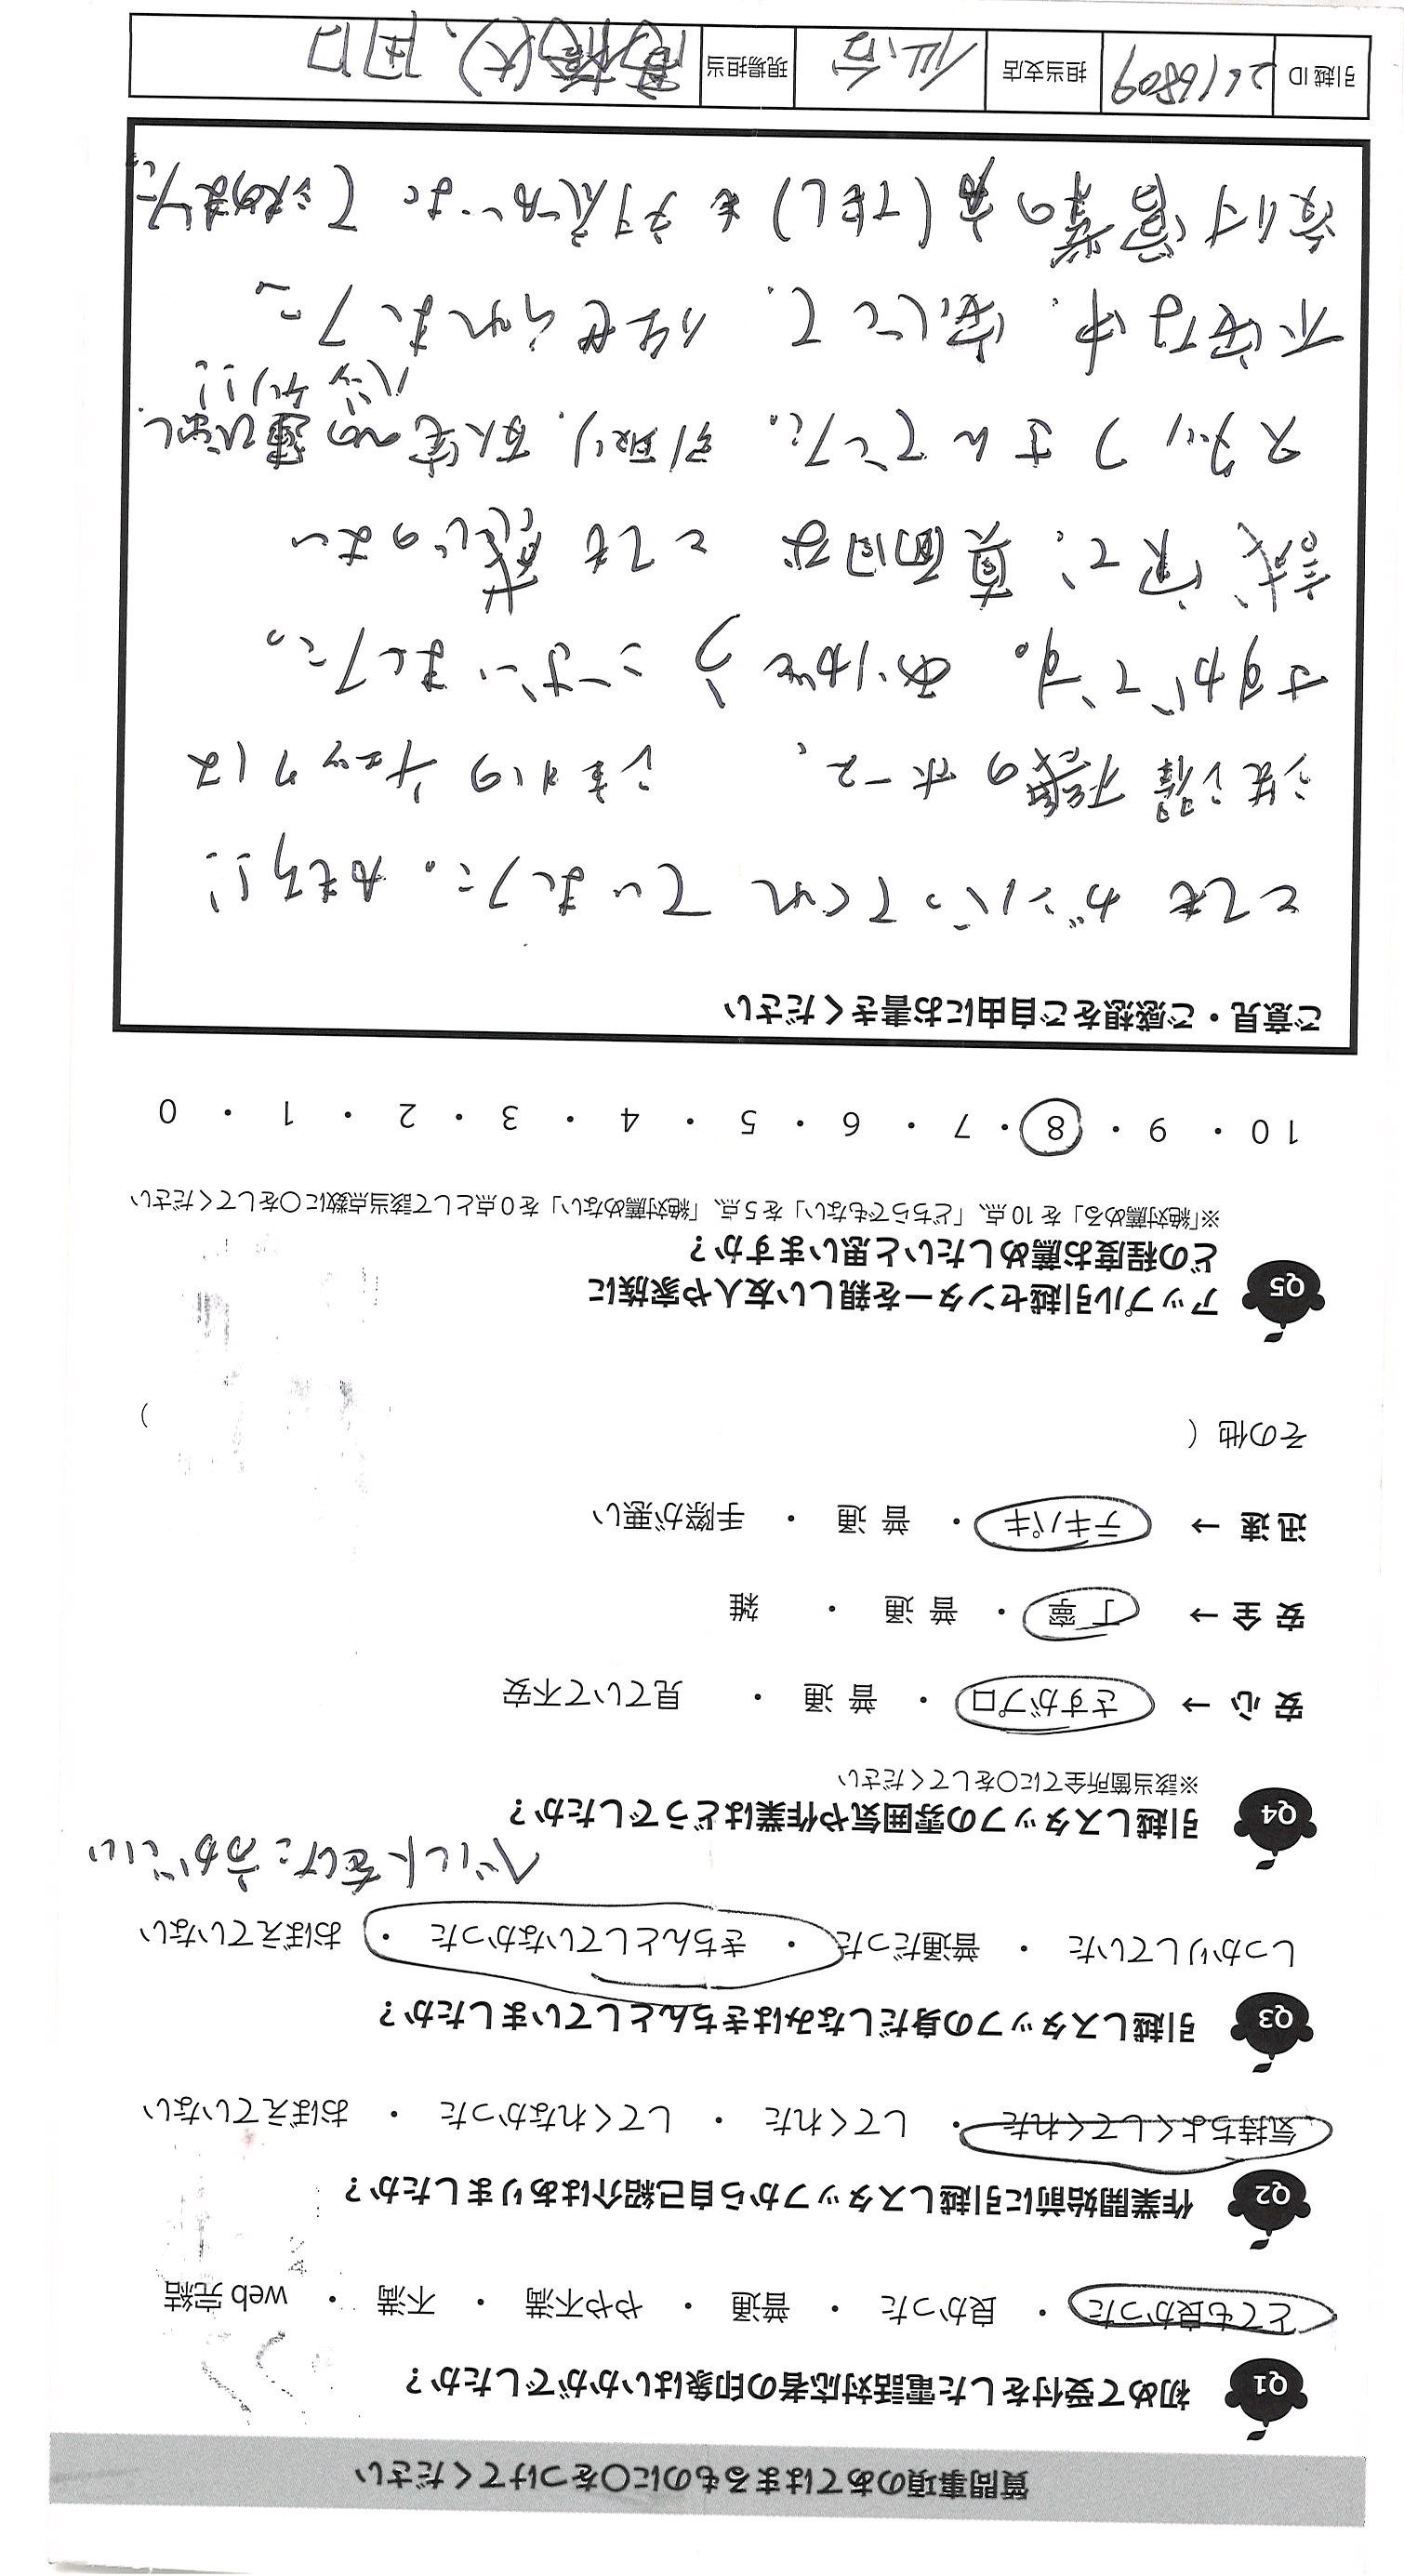 質問事項のあてはまるものに〇をつけてください
Q1 初めて受付をした電話対応者の印象はいかがでしたか？
とても良かった ・ 良かった ・ 普通 ・ やや不満 ・ 不満 ・ web 完結
Q2 作業開始前に引越しスタッフから自己紹介はありましたか？
気持ちよくしてくれた ・ してくれた ・ してくれなかった ・ おぼえていない
Q3 引越しスタッフの身だしなみはきちんとしていましたか？
しっかりしていた ・ 普通だった ・ きちんとしていなかった ・ おぼえていない
ベルトをした方がいい
Q4 引越しスタッフの雰囲気や作業はどうでしたか？
※該当箇所全てに〇をしてください
安 心 → さすがプロ ・ 普 通 ・ 見ていて不安
安 全 → 丁 寧 ・ 普 通 ・ 雑
迅 速 → テキパキ ・ 普 通 ・ 手際が悪い
その他（ ）
Q5 アップル引越センターを親しい友人や家族に
どの程度お薦めしたいと思いますか？
※「絶対薦める」を 10 点、「どちらでもない」を 5 点、「絶対薦めない」を 0 点として該当点数に〇をしてください
10 ・ 9 ・ 8 ・ 7 ・ 6 ・ 5 ・ 4 ・ 3 ・ 2 ・ 1 ・ 0
ご意見・ご感想をご自由にお書きください
とても ガンバってくれ ていました。
洗濯機のホース、 のチェックは
さすがです。 ありがとう ございました。
誠実で、真面目な とても 感じのよい
スタッフ さんでした。 引取り、 の運び出し
バッチリ!!
不安な中、安心して、 任せられました
 
引越 ID 2616809 担当支店 仙台 現場担当 高橋(大)、田口